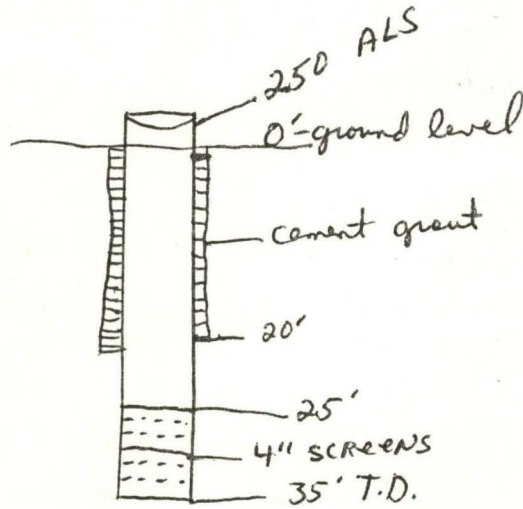 250 ALS
0'-ground level
cement grout
20'
25'
4" SCREENS
35' T.D.